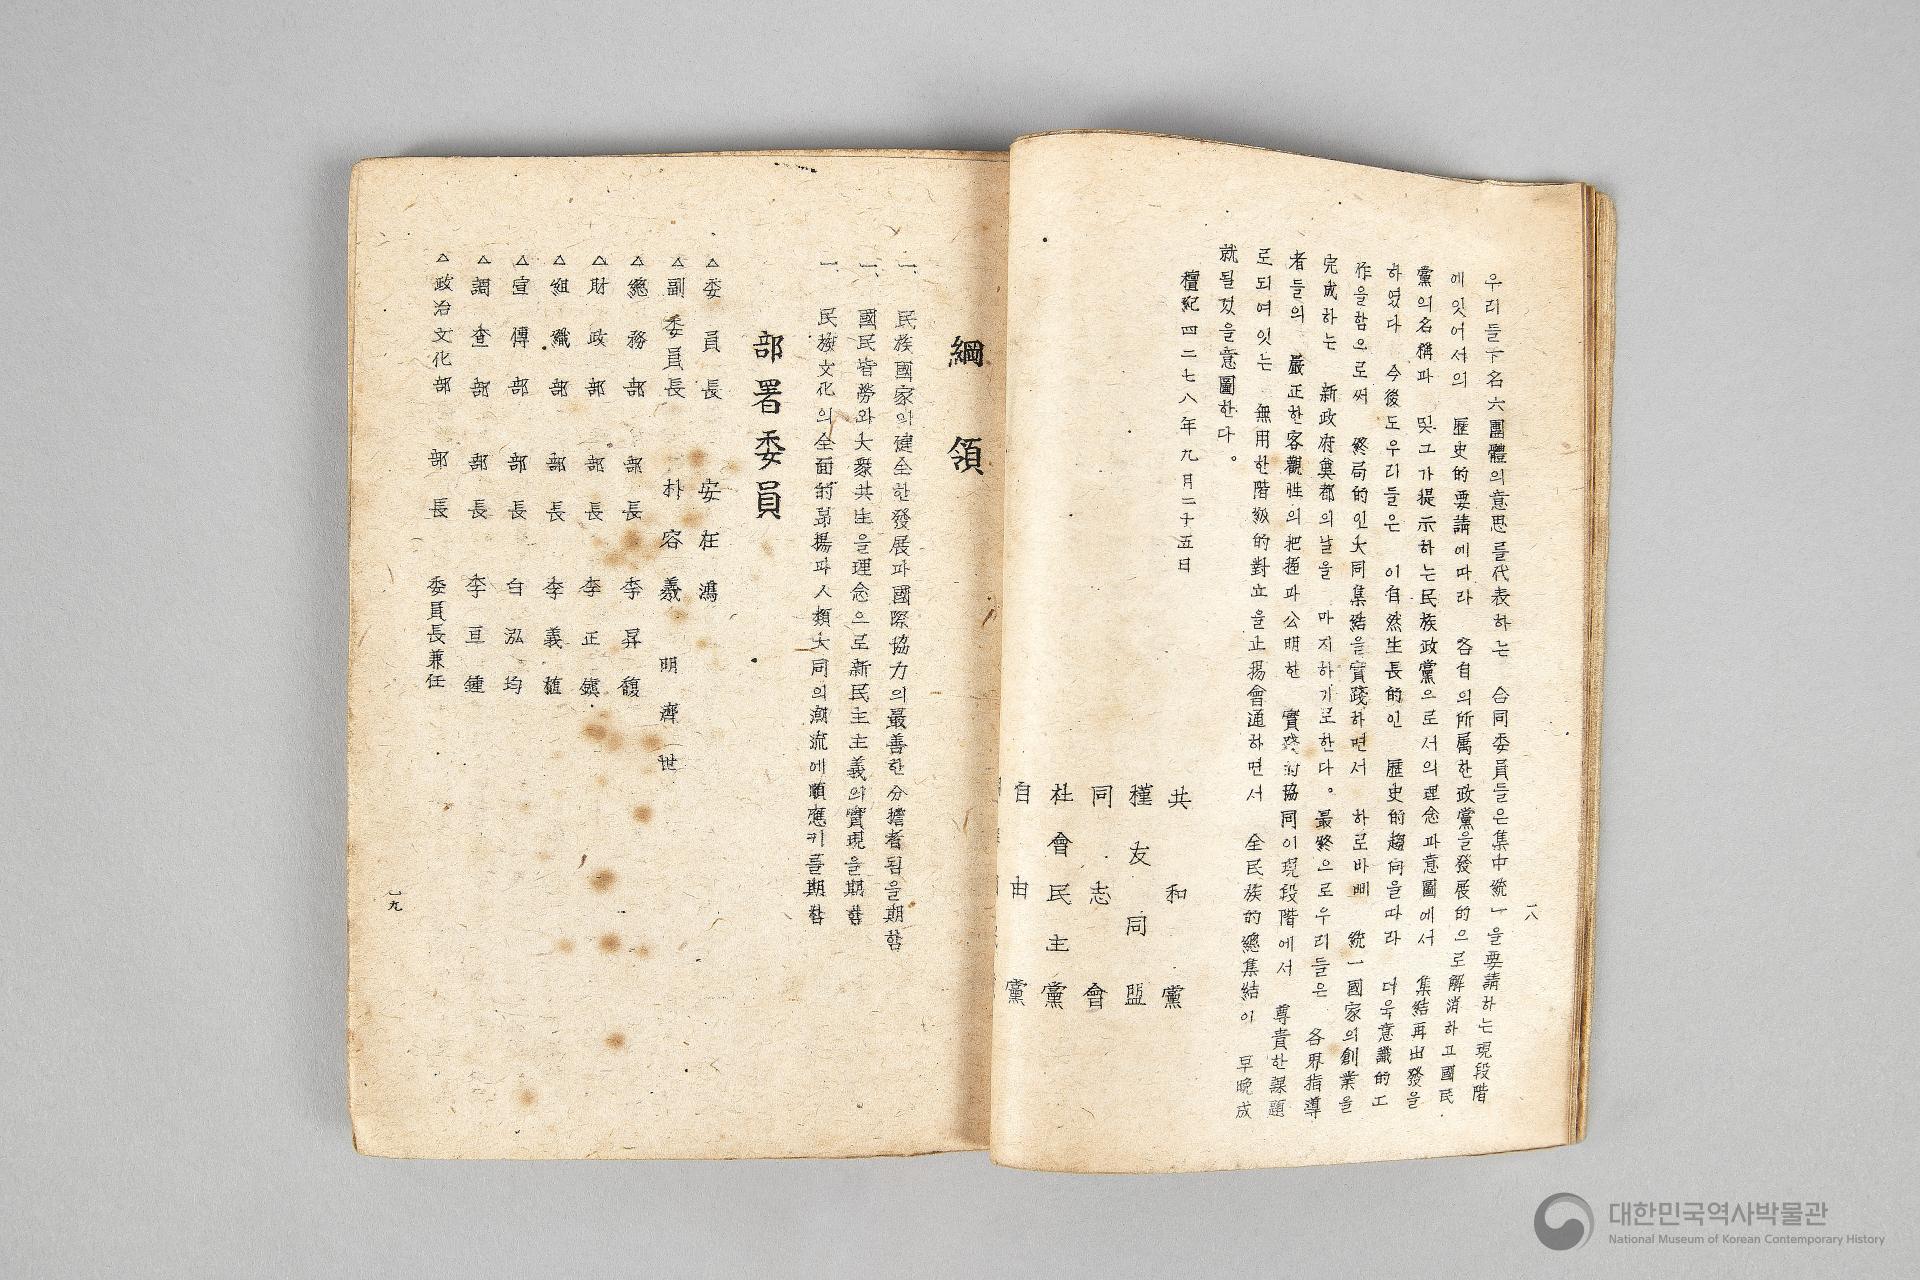 우리들下名六團體의意思를代表하는 合同委員들은集中統一을要請하는現段階
에잇어서의 歷史的要請에따라 各自의所屬한政黨을發展的으로解消하고國民
黨의名稱과 및그가提示하는民族政黨으로서의理念과意圖에서 集結再出發을
하였다 今後도우리들은 이自然生長的인 歷史的趨向을따라 더욱意識的工
作을함으로써 終局的인大同集結을實踐하면서 하로바삐 統一國家의創業을
完成하는 新政府奠都의날을 마지하기로한다。最終으로우리들은 各界指導
者들의 嚴正한客觀性의把握과公明한 實踐的協同이現段階에서 尊貴한課題
로되여잇는 無用한階級的對立을止揚會通하면서 全民族的總集結이 早晩成
就될것을意圖한다。
檀紀四二七八年九月二十五日
共和黨
槿友同盟
同志會
社會民主黨
自由黨
一八
綱領
一、民族國家의健全한發展과國際協力의最善한分擔者됨을期함
一、國民皆勞와大衆共生을理念으로新民主主義의實現을期함
一、民族文化의全面的昻揚과人類大同의潮流에順應키를期함
部署委員
△委員長 安在鴻
△副委員長 朴容羲 明濟世
△總務部 部長 李昇馥
△財政部 部長 李正鎭
△組織部 部長 李義植
△宣傳部 部長 白泓均
△調查部 部長 李亘鍾
△政治文化部 部長 委員長兼任
一九
대한민국역사박물관
National Museum of Korean Contemporary History